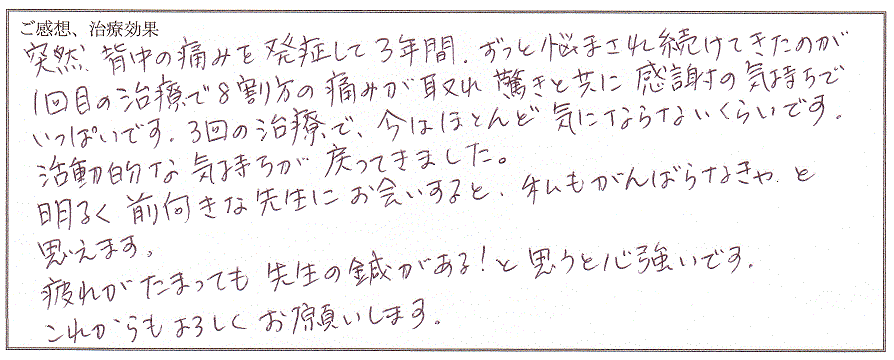 ご感想、治療効果
突然、背中の痛みを発症して3年間、ずっと悩まされ続けてきたのが
1回目の治療で8割方の痛みが取れ驚きと共に感謝の気持ちで
いっぱいです。3回の治療で、今はほとんど気にならないくらいです。
活動的な気持ちが戻ってきました。
明るく前向きな先生にお会いすると、私もがんばらなきゃと
思えます。
疲れがたまっても先生の鍼がある!と思うと心強いです。
これからもよろしくお願いします。